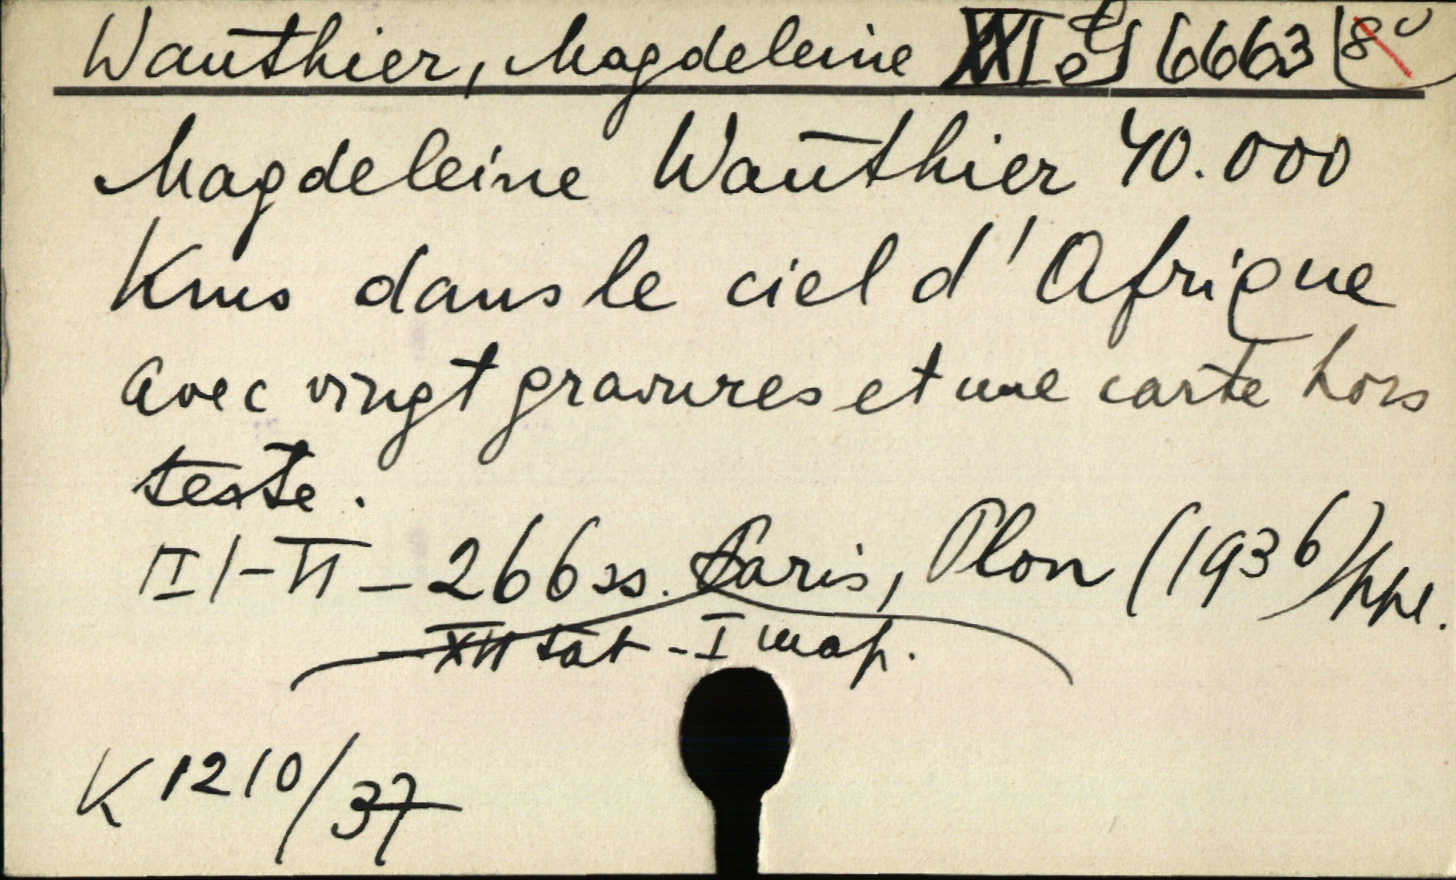 Wauthier, Magdeleine 6663 8°
Magdeleine Wauthier 40.000
Kms dans le ciel d'Afrique
avec vingt gravures et une carte hors
texte.
266 ss. Paris, Plon (1936) ppl.
XII táb - I map.
K 1210/37